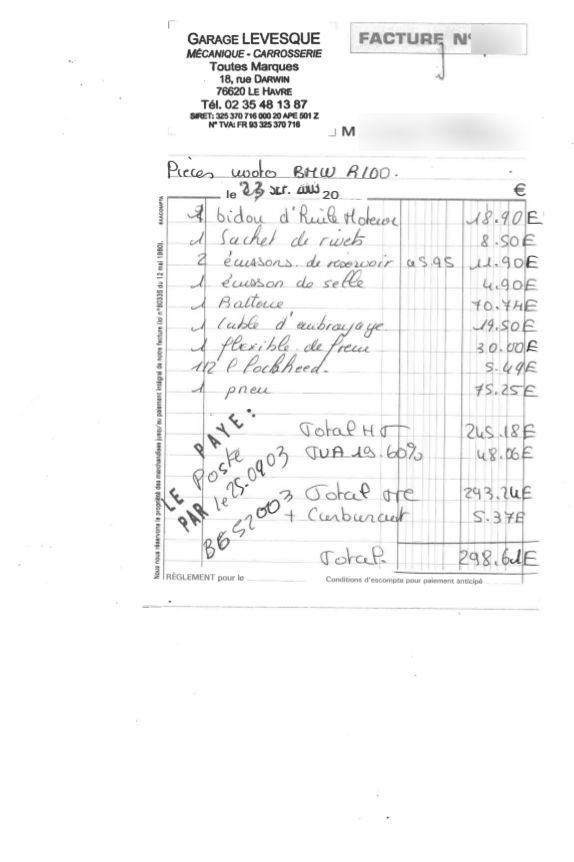 GARAGE LEVESQUE
MÉCANIQUE - CARROSSERIE
Toutes Marques
18, rue DARWIN
76620 LE HAVRE
Tél. 02 35 48 13 87
SIRET: 325 370 716 000 20 APE 501 Z
N° TVA: FR 93 325 370 716
FACTURE N°
M
Pièces moto BMW R100.
le 23 20 €
bidou d'Huile Moteur 18.90E
1 Sachet de rivets 8.50E
2 écussons de réservoir a 5.95 11.90E
1 écusson de selle 4.90E
1 Batterie 70.74E
1 Cable d'embrayage 19.50E
1 flexible de frein 30.00E
1/2 l lockheed. 5.49E
1 pneu 75.25E
Total HT 245.18E
TVA 19.60% 48.06E
Total TTC 293.24E
+ Carburant 5.37E
Total. 298.61E
LE PAYE :
Poste
PAR le 25.0903
BGS2003
RÈGLEMENT pour le
Conditions d'escompte pour paiement anticipé
EXACOMPTA
Nous nous réservons la propriété des marchandises jusqu'au paiement intégral de notre facture (loi n°80335 du 12 mai 1980).